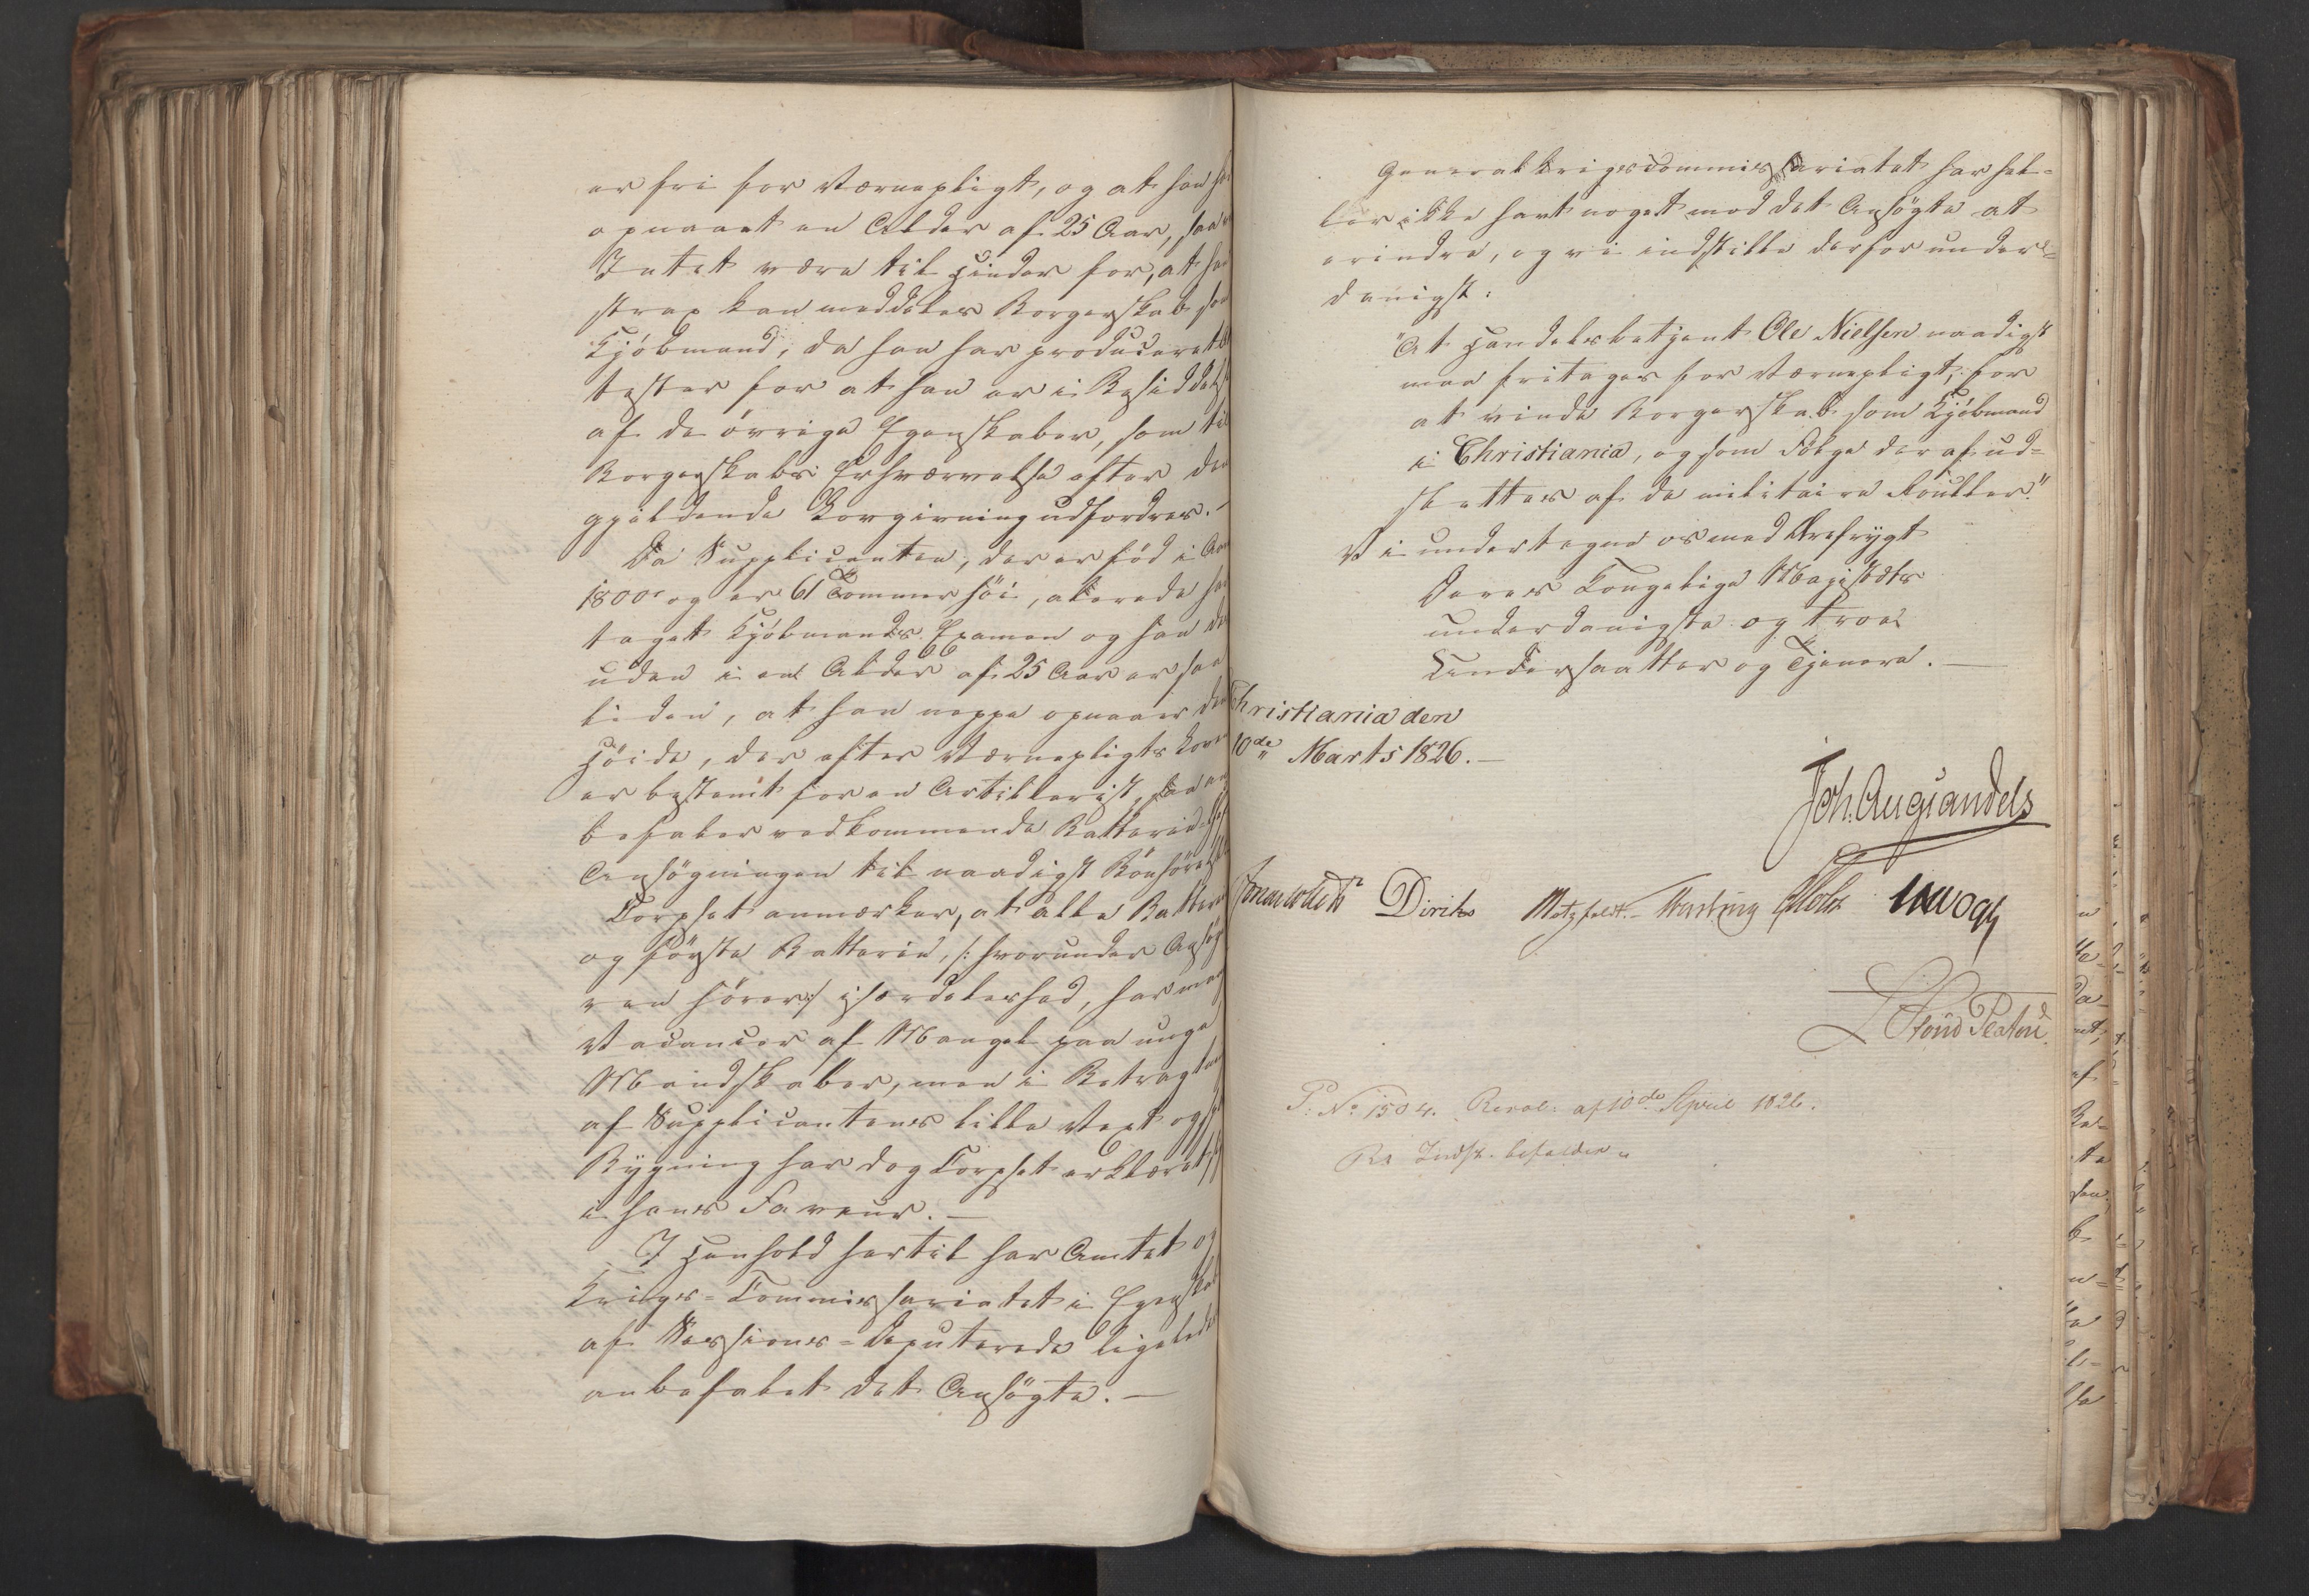 er fri for Værnepligt, og at han har
opnaaet en Alder af 25 Aar, saa
Intet være til Hinder for, at han
strax kan meddeles Borgerskab som
Kjöbmand, da han har produceret At
tester for at han er i Besiddelse
af de övrige Egenskaber, som til
Borgerskabs Erhvervelse efter den
gjældende Lovgivning udfordres.-
Da Supplicanten, der er föd i Aar
1800 og er 61 Tommer höi, allerede har
taget Kjöbmands Examen og han des
uden i en Alder af 25 Aar er saa
liden, at han neppe opnaaer den
Höide, der efter Værnepligts Loven
er bestemt for en Artillerist, saa an
befaler vedkommende Batterie-Chef
Ansögningen til naadigst Bönhörelse
Corpset anmærker, at alle Batterier
og förste Batterie, /: hvorunder Ansög
eren hörer :/ i særdeleshed, har mange
Vacancer af Mangel paa unge
Mandskaber, men i Betragtning
af Supplicantens lille Vext og
Bygning har dog Corpset erklæret sig
i hans Faveur.-
I Henhold hertil har Amtet og
Krigs-Commissariatet i Egenskab
af Sessions-Deputerede ligeledes
anbefalet det Ansögte.-
Generalkrigscommissariatet har hel-
ler ikke havt noget mod det Ansögte at
erindre, og vi indstille derfor under-
danigst:
"At Handelsbetjent Ole Nielsen naadigst
maa fritages for Værnepligt, for
at vinde Borgerskab som Kjöbmand
i Christiania, og som Fölge deraf ud-
slettes af de militaire Rouller."
Vi undertegne os med Ærefrygt
Deres Kongelige Majestæts
underdanigste og troe
Undersaatter og Tjenere.-
Christiania den
10de Marts 1826.-
Joh. Aug. Sandels
Diriks Motzfeldt.- Holst
P: No 1504. Resol: af 10de April 1826.
Indst. befalden